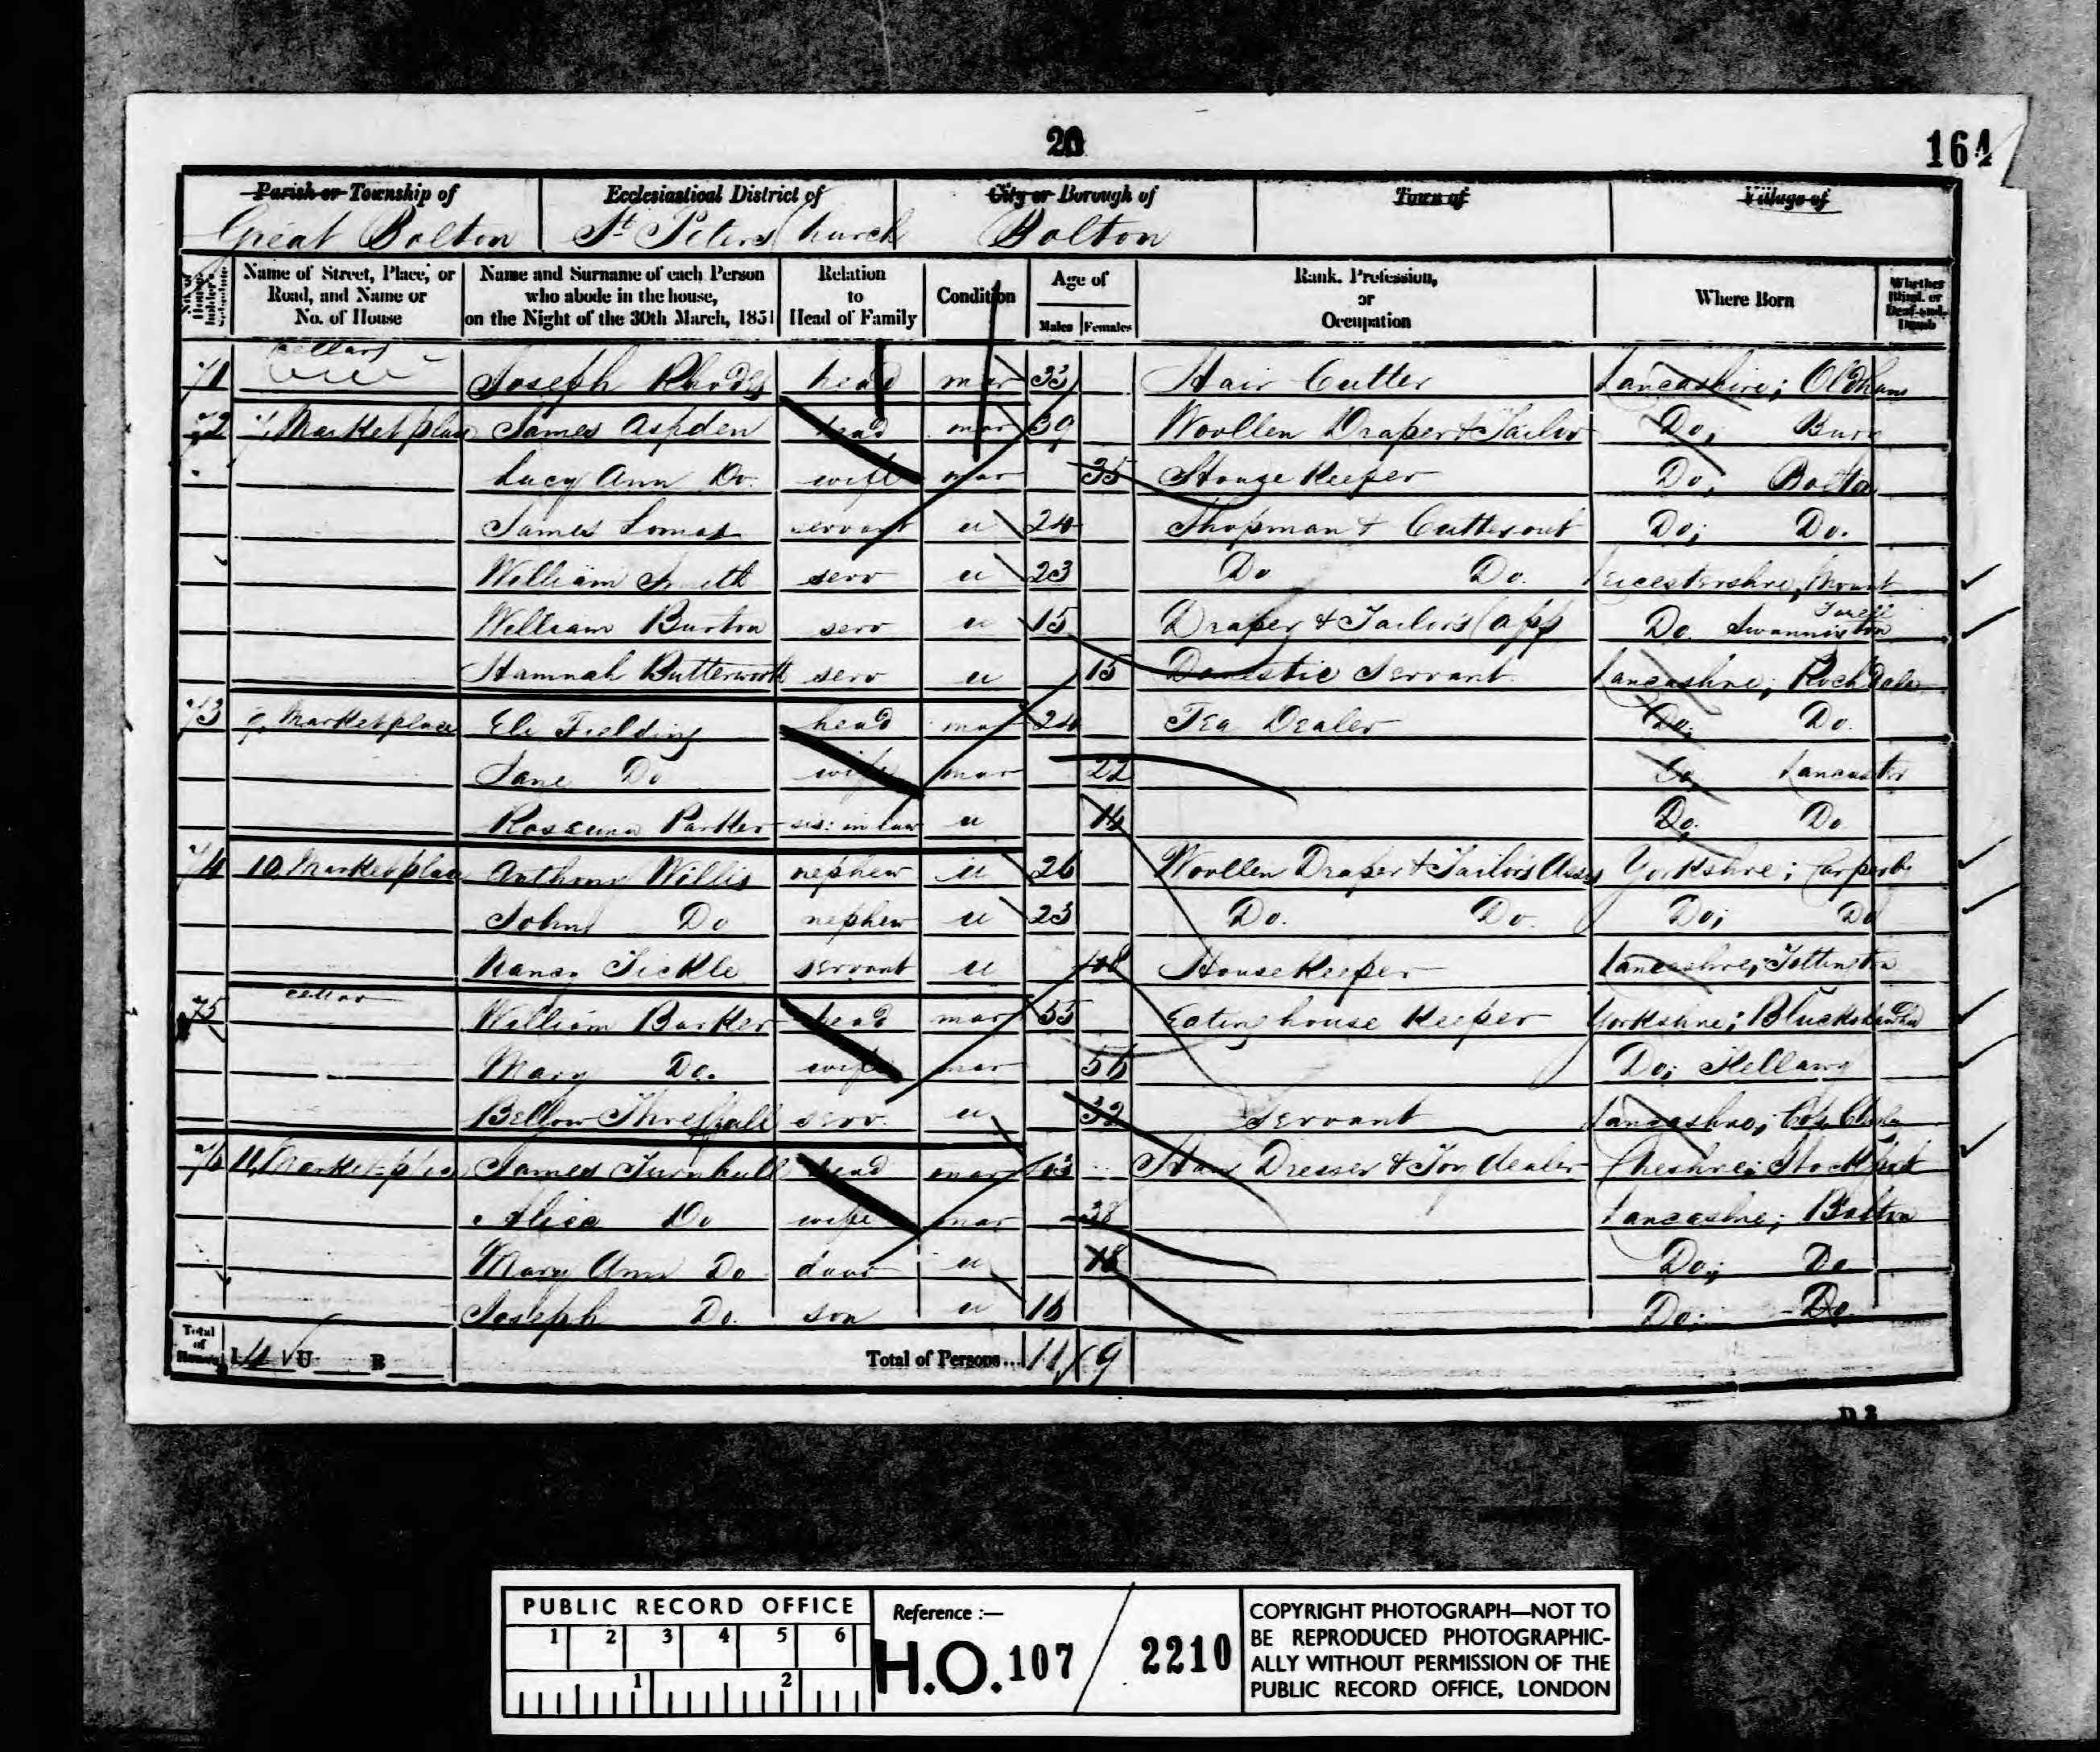 20
164
Parish or Township of Ecclesiastical District of City or Borough of Town of Village of
Great Bolton St Peters Church Bolton
No. of House holder's Schedule Name of Street, Place, or Road, and Name or No. of House Name and Surname of each Person who abode in the house, on the Night of the 30th March, 1851 Relation to Head of Family Condition Age of Males Females Rank, Profession, or Occupation Where Born Whether Blind, or Deaf-and-Dumb
71 Cellar Joseph Rhodes head mar 33 Hair Cutter Lancashire; Oldham
72 Market place James Aspden head mar 39 Woollen Draper & Tailor Do; Bury
Lucy Ann Do. wife mar 35 House Keeper Do, Bolton
James Lomax servant u 24 Shopman & Cutter out Do; Do.
William Smith serv u 23 Do Do. Leicestershire, Mount Sorell
William Burton serv u 15 Draper & Tailor's (app Do Swannington
Hannah Butterworth serv u 15 Domestic Servant Lancashire; Rochdale
73 9 Market place Eli Fielding head mar 24 Tea Dealer Do; Do.
Jane Do wife mar 22 Do Lancaster
Roseanna Parker sis: in law u 14 Do. Do
74 10 Market place Anthony Willis nephew u 26 Woollen Draper & Tailor's Asst Yorkshire; Carperby
John Do nephew u 23 Do. Do. Do; Do
Nancy Tickle servant u 48 House Keeper Lancashire; Tottington
75 cellar William Barker head mar 55 Eating house Keeper Yorkshire;
Mary Do. wife mar 56 Do;
Threlfall serv. u 32 Servant Lancashire;
76 11, Market-place James Turnbull head mar 43 Hair Dresser & Toy dealer Cheshire; Stockport
Alice Do wife mar 38 Lancashire; Bolton
Mary Ann Do daur u 18 Do; Do
Joseph Do. son u 16 Do; Do.
Total of Houses I 4 U B Total of Persons... 11 9
D 3
PUBLIC RECORD OFFICE
1 2 3 4 5 6
1 2
Reference :—
H.O. 107 / 2210
COPYRIGHT PHOTOGRAPH—NOT TO
BE REPRODUCED PHOTOGRAPHIC-
ALLY WITHOUT PERMISSION OF THE
PUBLIC RECORD OFFICE, LONDON